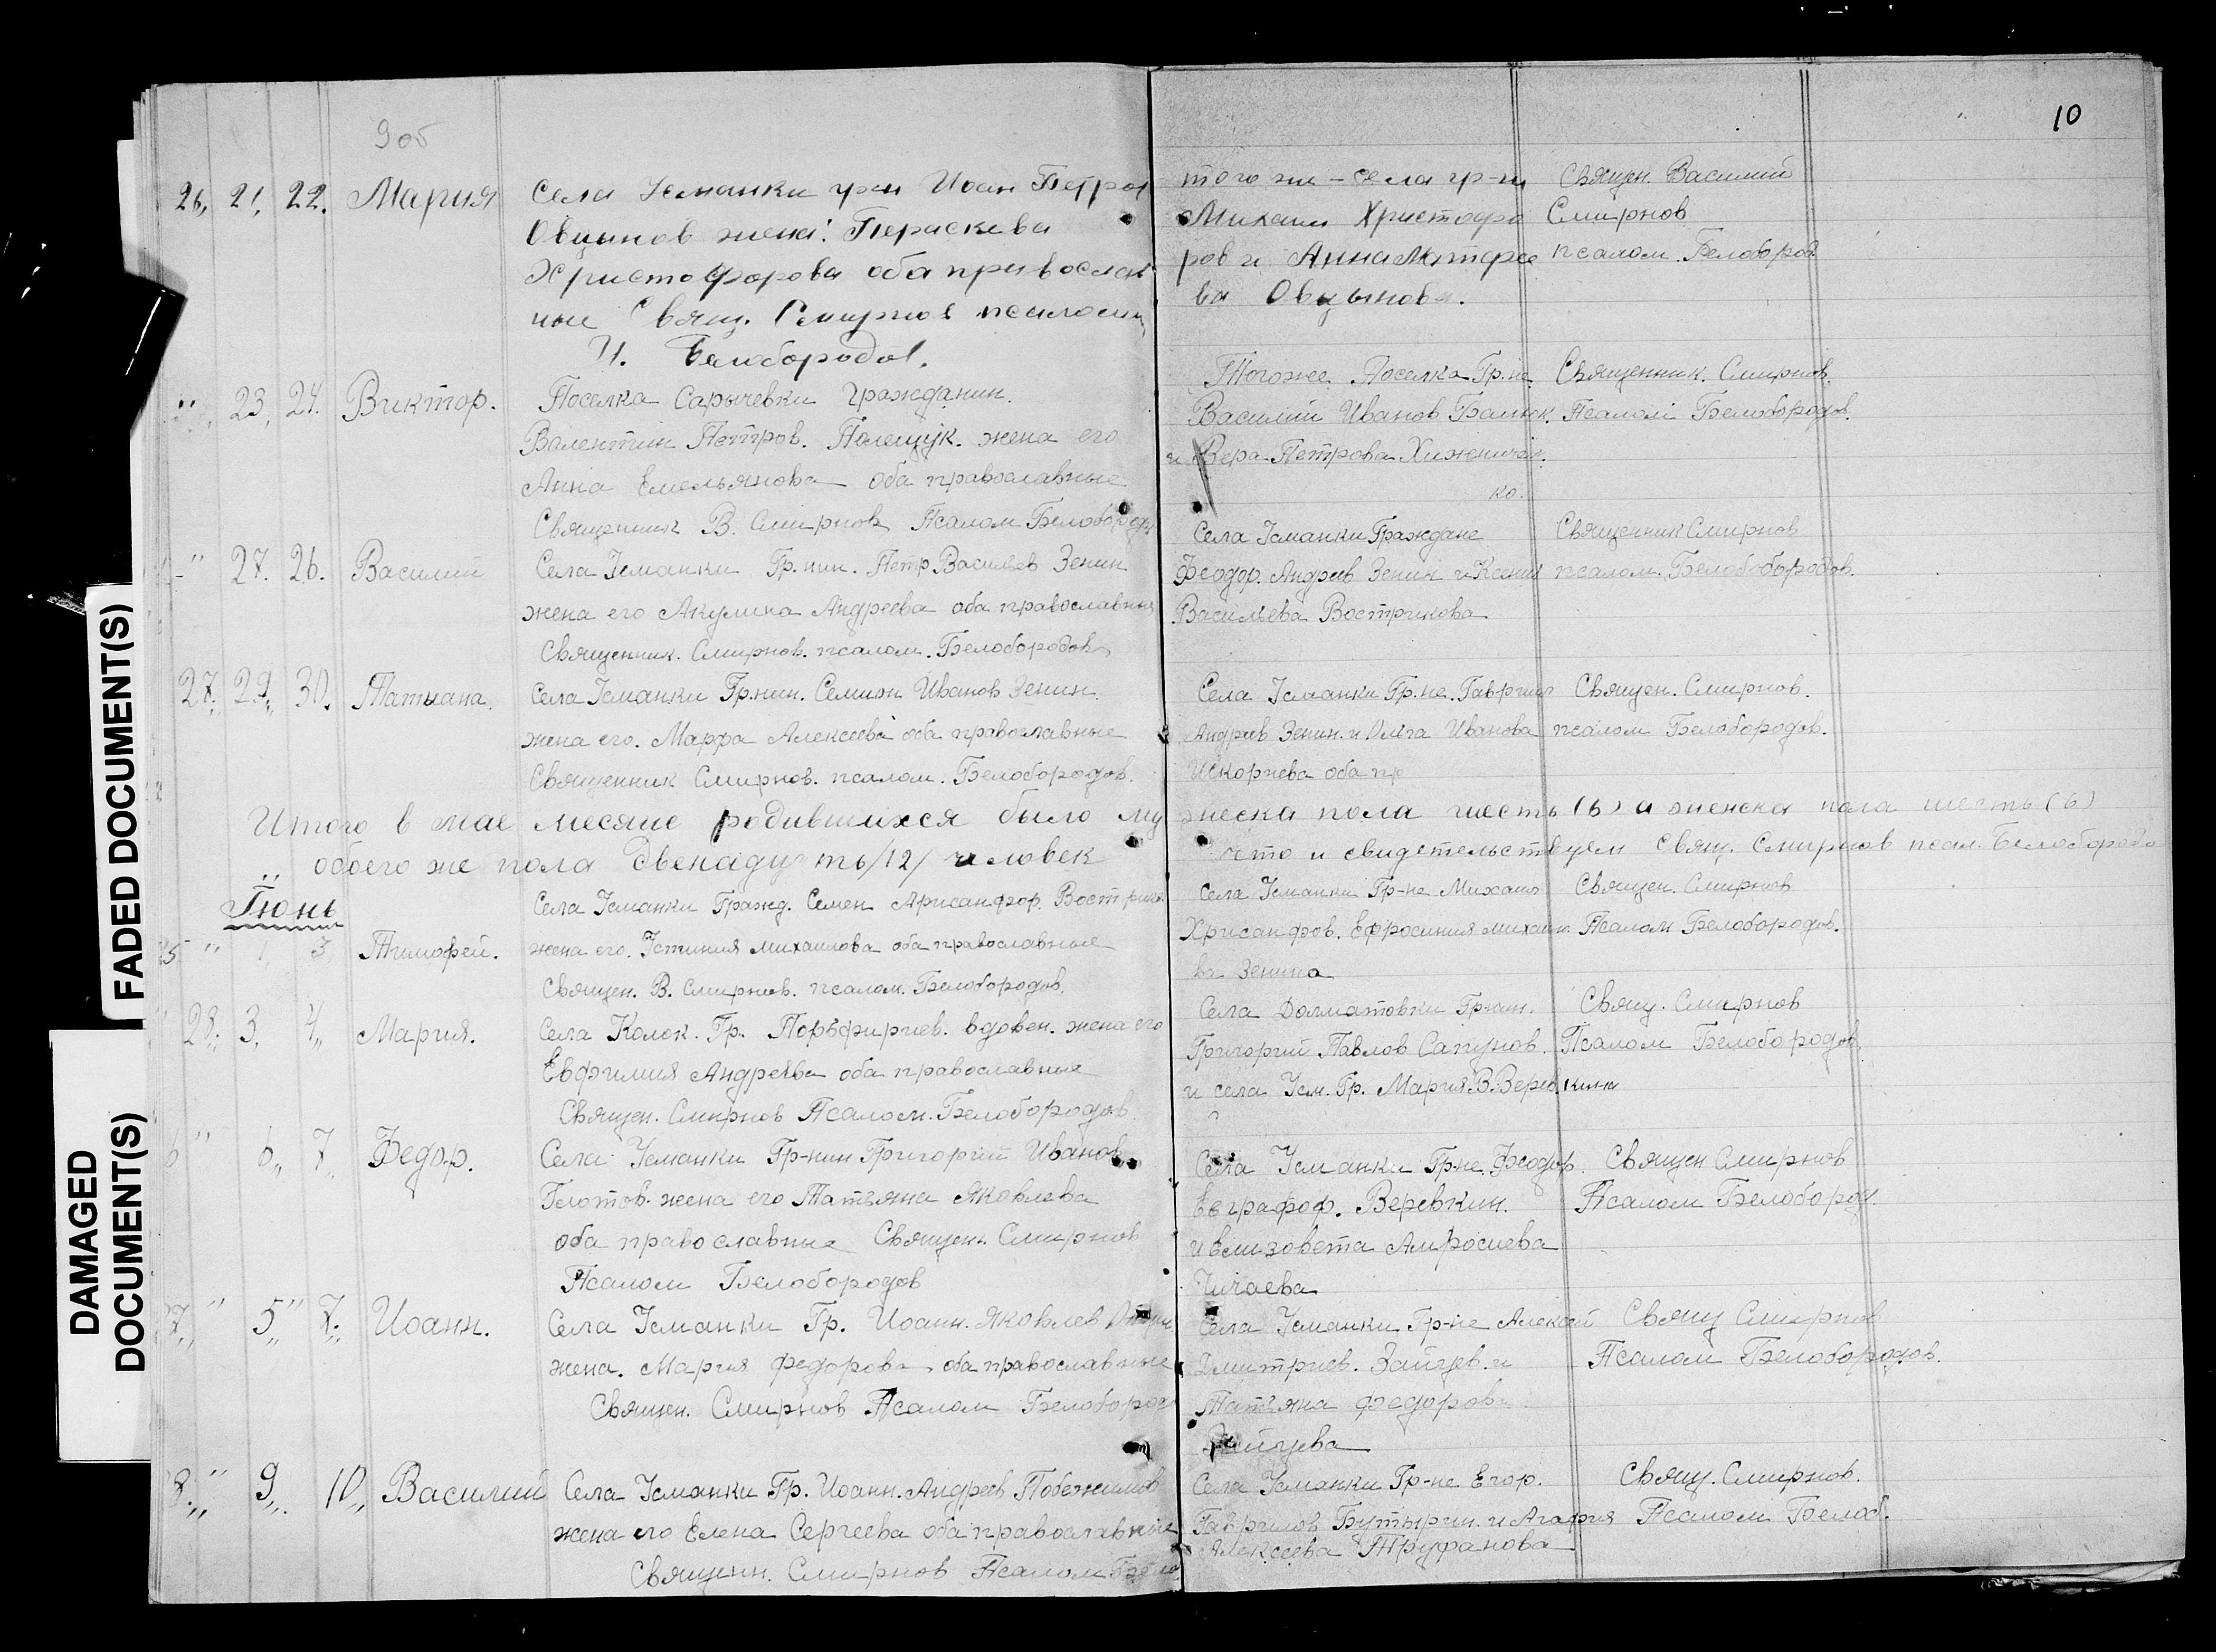 10
9 об
26, 21, 22. Мария Села Усманки грн Иоан Петров
Овцынов жена: Пераскева
Христофорова оба православ
ные Свящ. Смирнов псаломщ
И. Белобородов.
того же села гр-н Священ. Василий
Михаил Христофо Смирнов
ров и Анна Матфее псалом. Белобород
ва Овцынова.
" 23, 24. Виктор. Поселка Сарычевки Гражданин.
Валентин Петров. Полещук. жена его
Анна Емельянова оба православные
Священник В. Смирнов Псалом Белобород
Тогоже Поселка Гр.не Священник. Смирнов.
Василий Иванов Псалом Белобородов.
и Вера Петрова
ко.
" 27. 26. Василий Села Усманки Гр.нин. Петр Васильев Зенин
жена его Акулина Андреева оба православные
Священник. Смирнов. псалом. Белобородов
Села Усманки Граждане Священник Смирнов
Феодор. Андреев Зенин и Ксения псалом. Белобобородов.
Васильева Вострикова
27. 29. 30. Татьяна. Села Усманки Гр.нин. Семион Иванов Зенин.
жена его. Марфа Алексеева оба православные
Священник Смирнов. псалом. Белобородов.
Села Усманки Гр.не. Гавриил Священ. Смирнов.
Андреев Зенин. и Ольга Иванова псалом Белобородов.
Искорнева оба пр
Итого в мае месяце родившихся было му жеска пола шесть (6) и женска пола шесть (6)
обоего же пола двенадцать /12/ человек что и свидетельствуем Свящ. Смирнов псал. Белобородо
Июнь
25 " 1 3 Тимофей. Села Усманки Гражд. Семен Арисанфор. Вострик
жена его. Устиния михаилова оба православные
Священ. В. Смирнов. псалом. Белобородов.
Села Усманки Гр-не Михаил Священ. Смирнов
Хрисанфов. Ефросиния михаило Псалом Белобородов.
ва Зенина
" 28. 3. 4. Мария. Села Колок. Гр. Порьфириев. вдовен. жена его
Евфимия Андреева оба православные
Священ. Смирнов Псалом. Белобородов
Села Долматовки Гр.нин. Свящ. Смирнов
Григорий Павлов Сапунов. Псалом Белобородов
и села Усм. Гр. Мария В. Верев.кина
6 " 6, 7 Федор. Села Усманки Гр-нин Григорий Иванов
Глотов. жена его Татьяна Яковлева
оба православные Священ. Смирнов
Псалом Белобородов
Села Усманки Гр.не. Феодор. Священ Смирнов
Евграфоф. Веревкин. Псалом Белобород.
и Елизовета Амросиева
Чичаева
7, " 5" 7. Иоанн. Села Усманки Гр. Иоанн. Яковлев
жена. Мария Федорова, оба православные
Священ. Смирнов Псалом Белобород
Села Усманки Гр-не Алексей Свящ Смирнов
Дмитриев. Зайцев. и Псалом Белобородов.
Татьяна Федорова
Зайцева
8. " 9. 10, Василий Села Усманки Гр. Иоанн. Андреев Побежимов
жена его Елена Сергеева оба православные
Священн. Смирнов Псалом Бело
Села Усманки Гр-не Егор. Свящ. Смирнов.
Гаврилов Бутырин. и Агафия Псалом Белоб.
Алексеева Труфанова
FADED DOCUMENT(S)
DAMAGED
DOCUMENT(S)